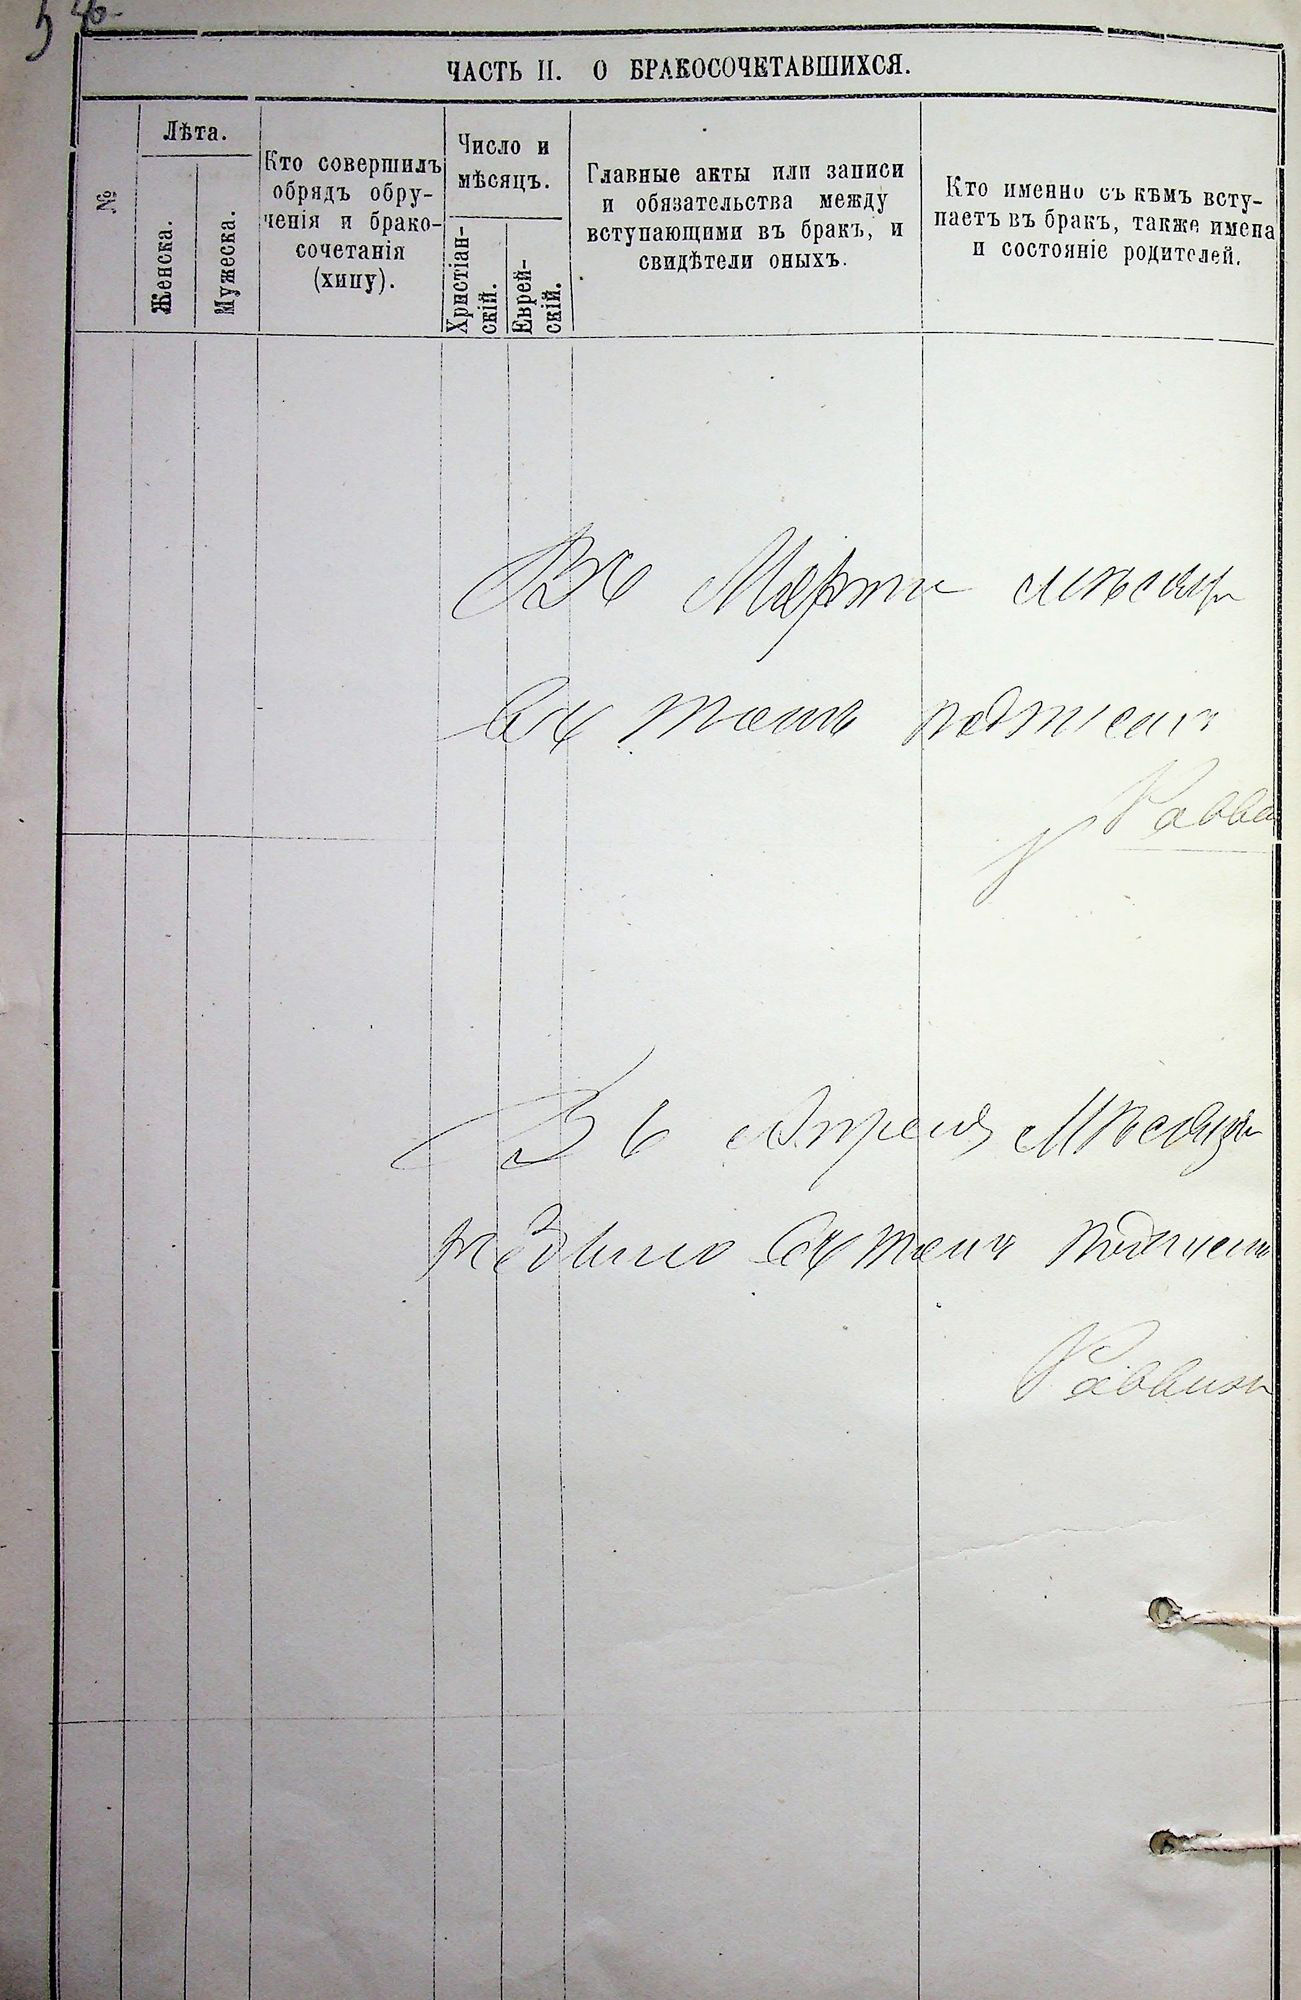 ЧАСТЬ II. О БРАКОСОЧЕТАВШИХСЯ.
№
Лѣта.
Женска.
Мужеска.
Кто совершилъ
обрядъ обру-
ченія и брако-
сочетанія
(хипу).
Число и
мѣсяцъ.
Христіан-
скій.
Еврей-
скій.
Главные акты или записи
и обязательства между
вступающими въ бракъ, и
свидѣтели оныхъ.
Кто именно съ кѣмъ всту-
паетъ въ бракъ, также имена
и состояніе родителей.
Въ Мартѣ мѣсяц
въ томъ подписом
Равви
Въ Апрелѣ Мѣсяцѣ
небыло въ томъ подписом
Раввинъ